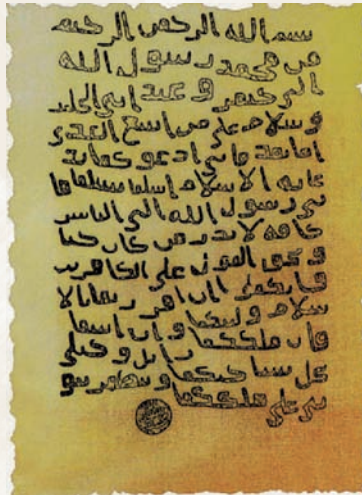 بسم الله الرحمن الرحيم
من محمد رسول الله
الى جيفر و عبد ابني الجلند
و سلام على من اتبع الهدى
اما بعد فاني ادعوكما بد
عايه الاسلام اسلما تسلما فا
ني رسول الله الى الناس
كافه لانذر من كان حيا
و يحق القول على الكافرين
وانكما ان اقررتما بالا
سلام وليتكما و ان ابيتما
فان ملككما زايل و خيلي
تحل بساحتكما و تظهر نبو
تي على ملككما